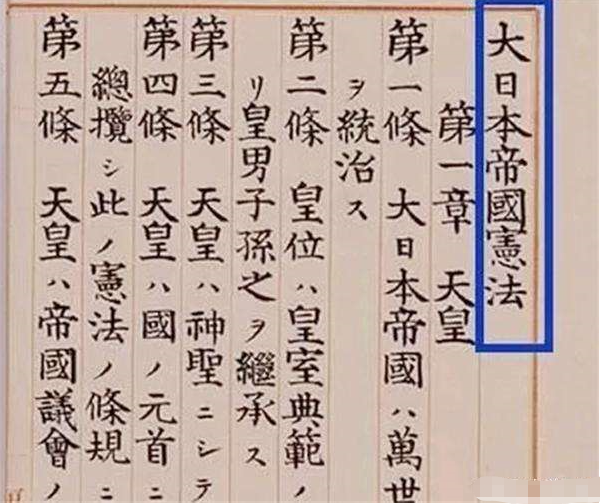 大日本帝國憲法
第一章　天皇
第一條　大日本帝國ハ萬世
ヲ統治ス
第二條　皇位ハ皇室典範ノ
リ皇男子孫之ヲ繼承ス
第三條　天皇ハ神聖ニシテ
第四條　天皇ハ國ノ元首ニ
總攬シ此ノ憲法ノ條規ニ
第五條　天皇ハ帝國議會ノ